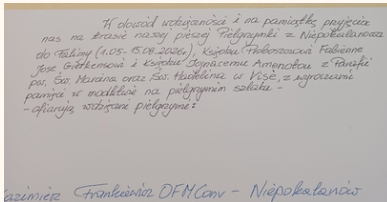 W dowód wdzięczności i na pamiątkę przyjęcia
nas na trasie naszej pieszej Pielgrzymki z Niepokalanowa
do Fatimy (1.05 - 15.08.2026), Księdzu Proboszczowi Fabienne
José Gierkensowi i Księdzu Ignacemu Amenotou z Parafii
pw. Św. Marcina oraz Św. Hadelina w Visé, z wyrazami
pamięci w modlitwie na pielgrzymim szlaku -
- ofiarują wdzięczni pielgrzymi:
Kazimierz Frankiewicz OFMConv - Niepokalanów